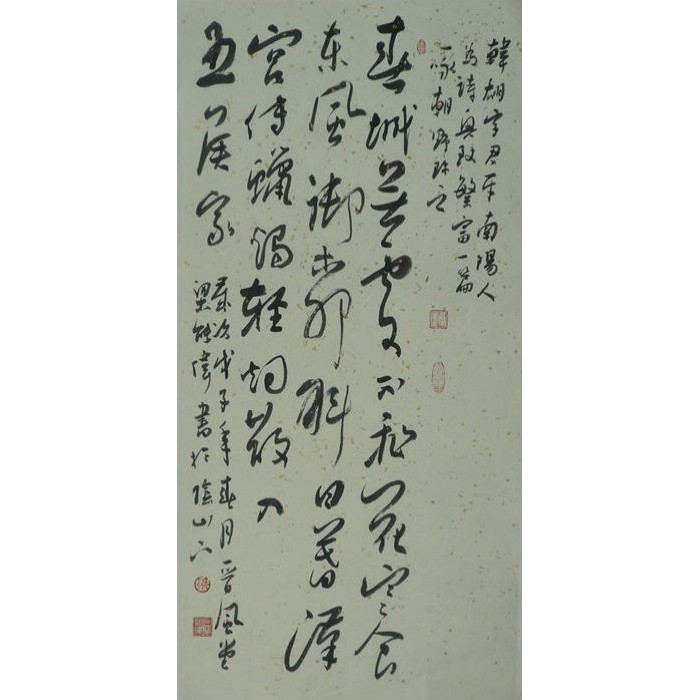 韓翃字君平南陽人
為詩興致繁富一篇
一詠朝野珍之
春城無處不飛花寒食
東風御柳斜日暮漢
宮傳蠟燭輕烟散入
五侯家
歲次戊子年春月晉風堂
梁 偉書於陰山下